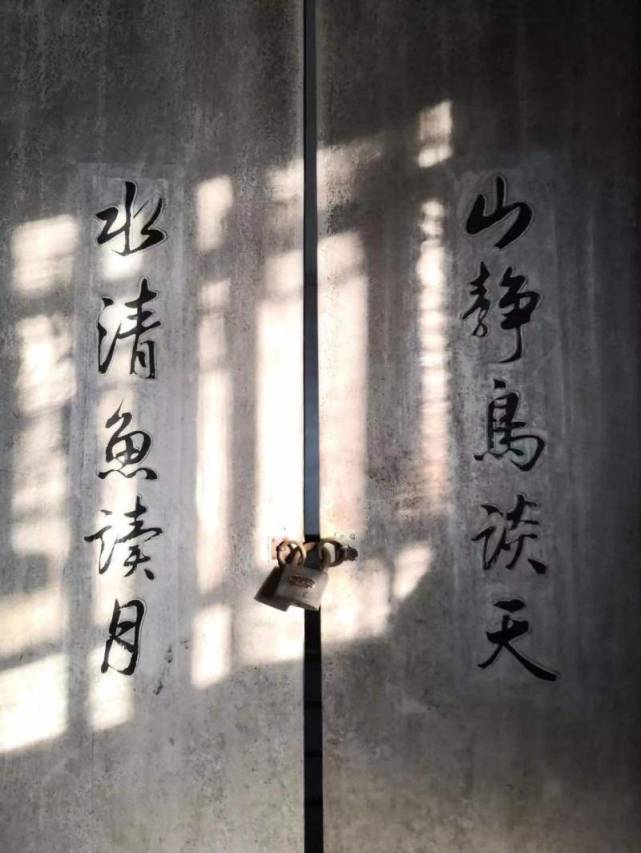 山静鳥談天
水清魚読月